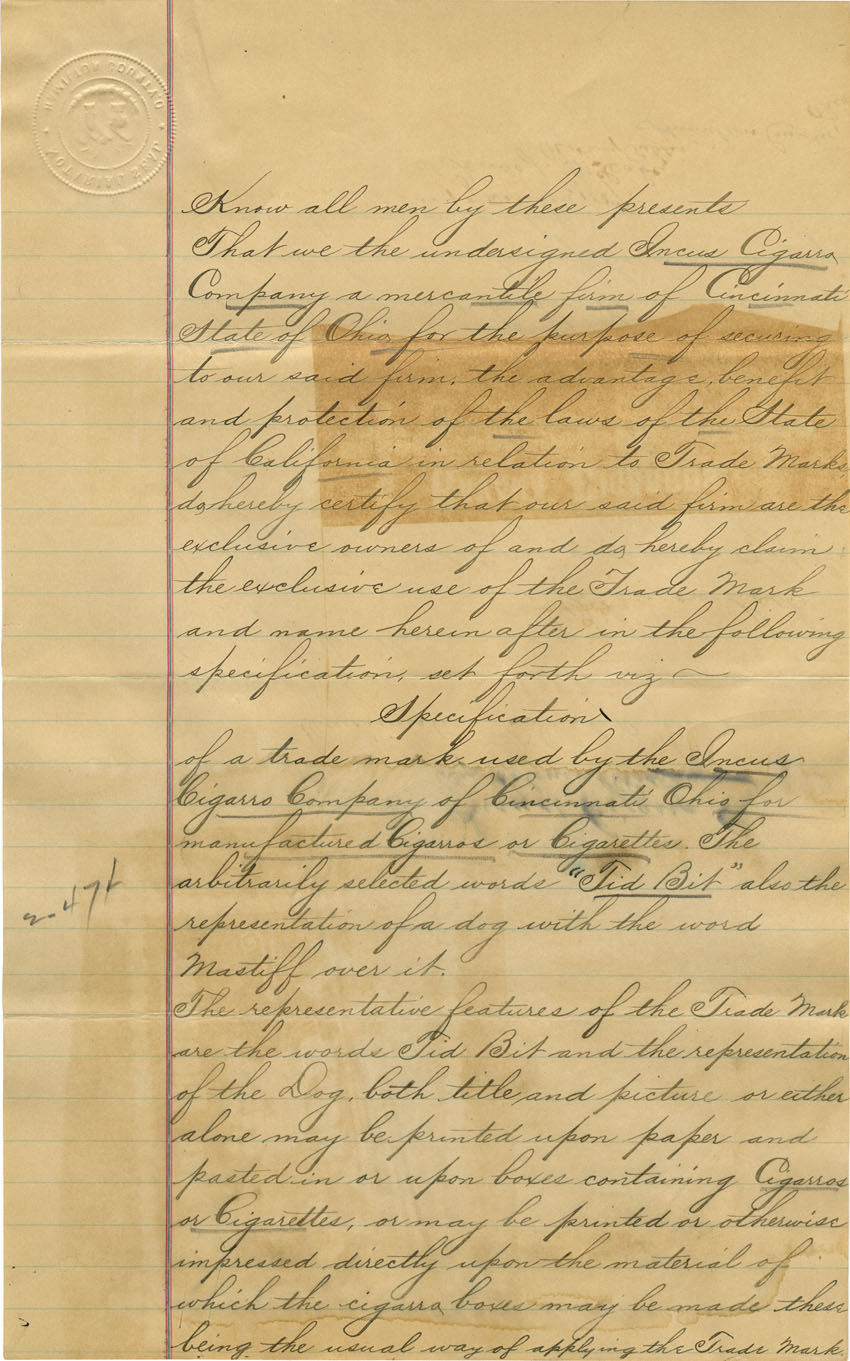 Know all men by these presents
That we the undersigned Incus Cigarro
Company a mercantile firm of Cincinnati
State of Ohio for the purpose of securing
to our said firm, the advantage, benefit
and protection of the laws of the State
of California in relation to Trade Marks,
do hereby certify that our said firm are the
exclusive owners of and do hereby claim
the exclusive use of the Trade Mark
and name herein after in the following
specification, set forth viz ~
Specification
of a trade mark used by the Incus
Cigarro Company of Cincinnati Ohio for
manufactured Cigarros or Cigarettes. The
arbitrarily selected words "Tid Bit" also the
representation of a dog with the word
Mastiff over it.
2-471
The representative features of the Trade Mark
are the words Tid Bit and the representation
of the Dog, both title and picture or either
alone may be printed upon paper and
pasted in or upon boxes containing Cigarros
or Cigarettes, or may be printed or otherwise
impressed directly upon the material of
which the cigarro boxes may be made these
being the usual way of applying the Trade Mark.